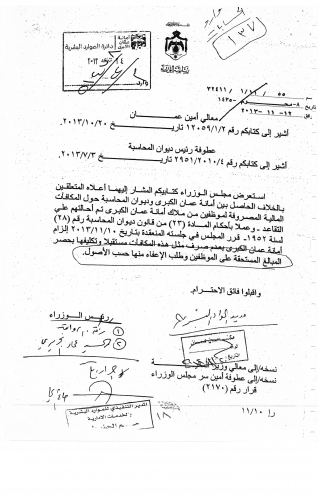 ١٣٧
دائرة الموارد البشرية
٥٥ / ١ / ١١ / ٧٢٤١١
٨ - محرم - ١٤٣٥
١٢ - ١١ - ٢٠١٣
معالي أمين عمان
أشير إلى كتابكم رقم ١٢٠٥٩/١/٢ تاريخ ٢٠١٣/١٠/٢٠
عطوفة رئيس ديوان المحاسبة
أشير إلى كتابكم رقم ٢٩٥١/٢٠١٠/٤ تاريخ ٢٠١٣/٧/٣
استعرض مجلس الوزراء كتابيكم المشار إليهما أعلاه المتعلقين
بالخلاف الحاصل بين أمانة عمان الكبرى وديوان المحاسبة حول المكافآت
المالية المصروفة لموظفين من ملاك أمانة عمان الكبرى تم أحالتهم على
التقاعد - وعملاً بأحكام المادة (٢٣) من قانون ديوان المحاسبة رقم (٢٨)
لسنة ١٩٥٢، قرر المجلس في جلسته المنعقدة بتاريخ ٢٠١٣/١١/١٠ إلزام
أمانة عمان الكبرى بعدم صرف مثل هذه المكافآت مستقبلاً وتكليفها بحصر
المبالغ المستحقة على الموظفين وطلب الإعفاء منها حسب الأصول.
واقبلوا فائق الاحترام،
رئيس الوزراء
نسخة/إلى معالي وزير
نسخة/إلى عطوفة أمين سر مجلس الوزراء
قرار رقم (٢١٧٠)
ر١ ١١/١٠
المدير التنفيذي للموارد البشرية
والخدمات الإدارية
١٨